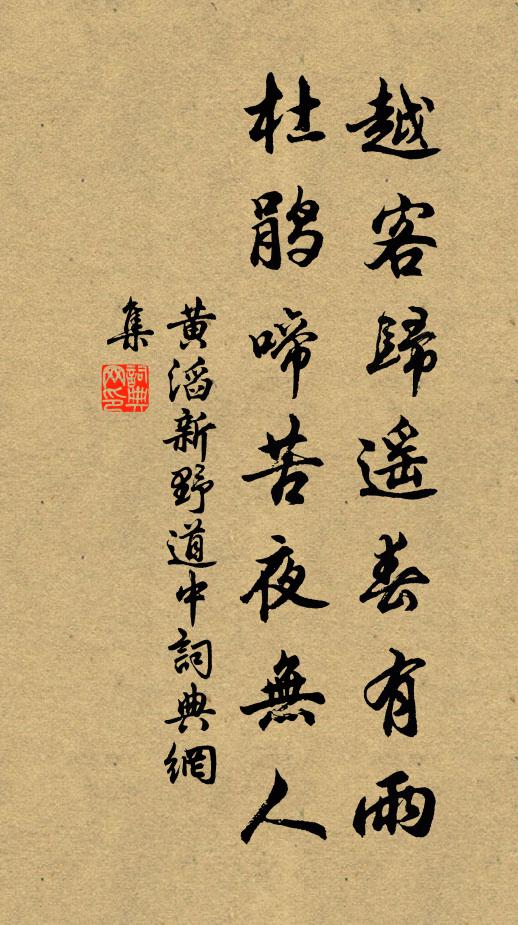 越客歸遥春有雨
杜鹃啼苦夜無人
黄滔新野道中詞典網
集
詞典
网印